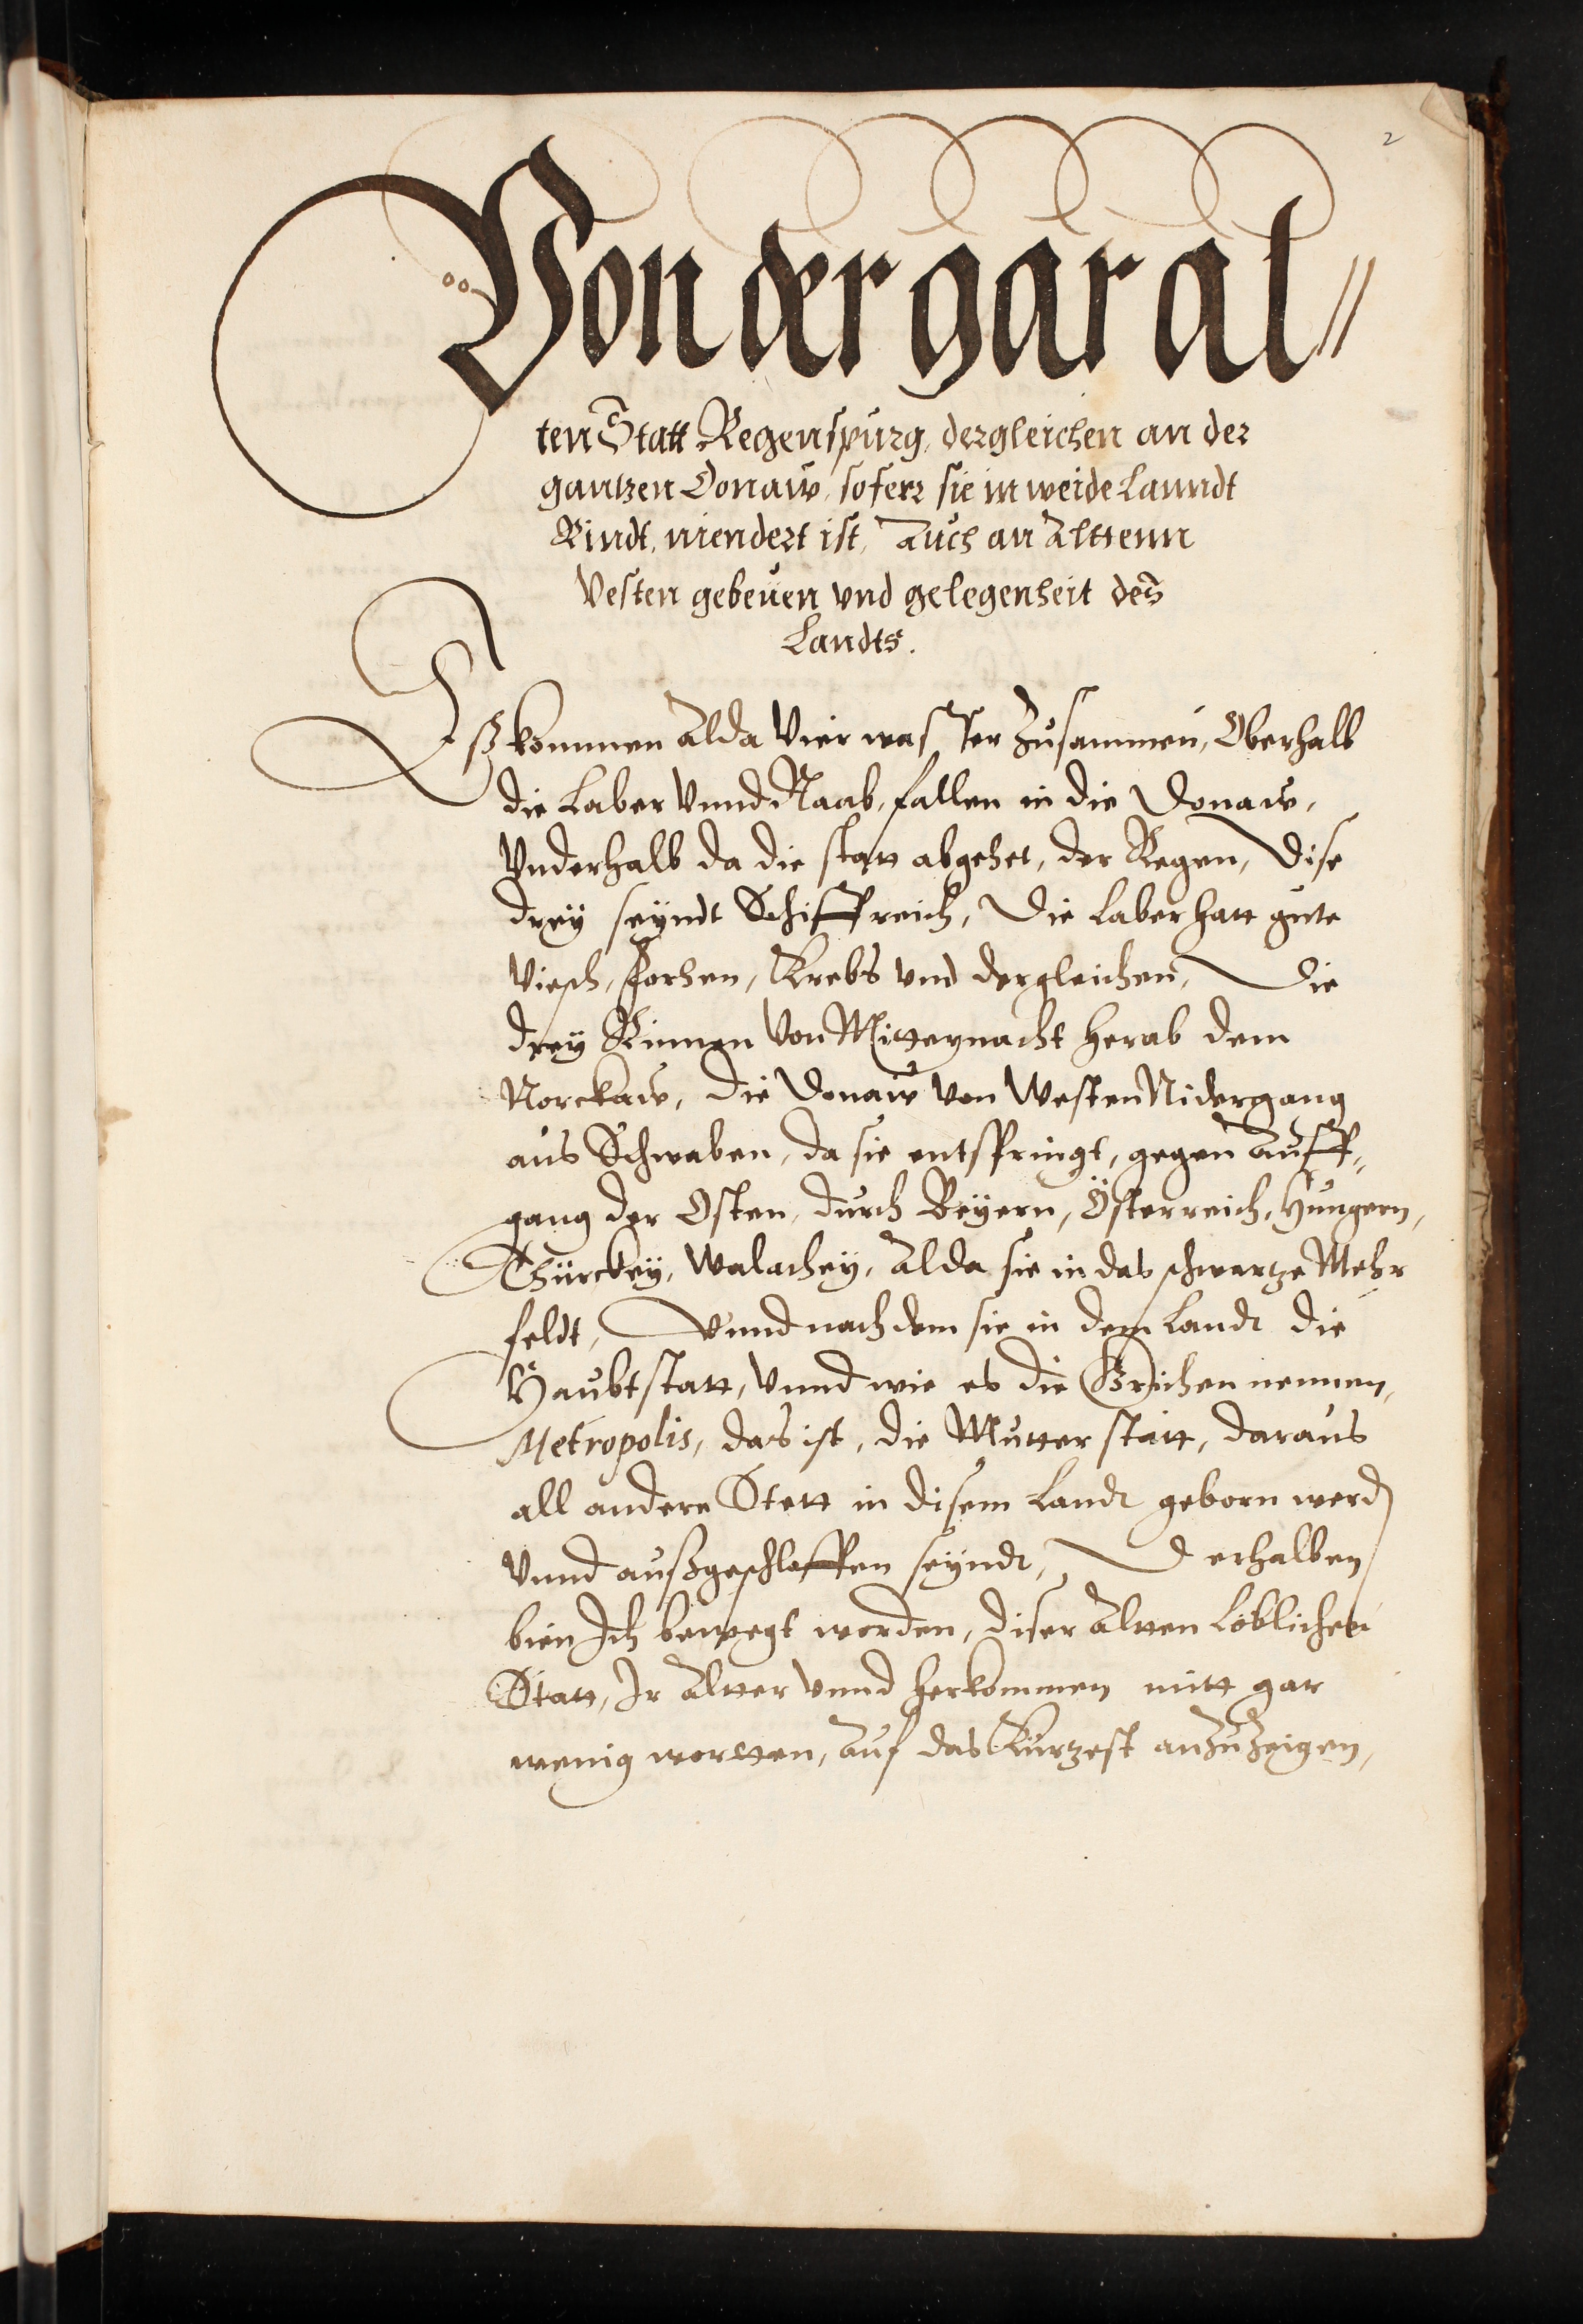 2
Von der gar al//
ten Statt Regenspurg, dergleichen an der
gantzen Donaw, soferr sie in weide Lanndt
Rindt, niendert ist, Auch an Alttenn
Vesten gebeüen vnd gelegenheit des
Landts.
Eß kommen Alda Vier wasser Zusammen, Oberhalb
die Laber Vnnd Naab, fallen in die Donaw,
Vnderhalb da die statt abgehet, der Regen, Dise
drey seyndt Schiffreich, Die Laber hatt gute
Viesch, Forhen, Krebs vnd dergleichen, Die
drey Rinnen Von Mitteynacht herab dem
Norckaw, die Donaw von Westen Nidergang
aus Schwaben, da sie entspringt, gegen Auff„
gang der Osten, durch Beyern, Österreich, Hungern,
Thürckey, Walachey, Alda sie in das schwartze Mehr
feldt, Vnnd nachdem sie in dem Landt die
Haubtstatt, Vnnd wie es die Grichen nennen,
Metropolis, das ist, die Mutter statt, daraus
all andere Stett in disem Landt geborn werd
Vnnd außgeschloffen seyndt, Derhalben
bien Ich bewegt worden, diser Altten Loblichen
Statt, Ir Altter Vnnd herkommen mitt gar
wenig wortten, Auf das Kürtzest anzuzeigen,